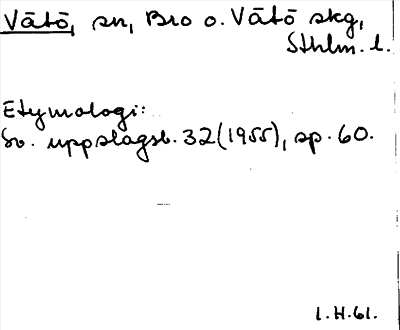 Vätö, sn, Bro o. Vätö skg,
Sthlm. l.
Etymologi:
Sv. uppslagsb. 32 (1955), sp. 60.
l.H.61.